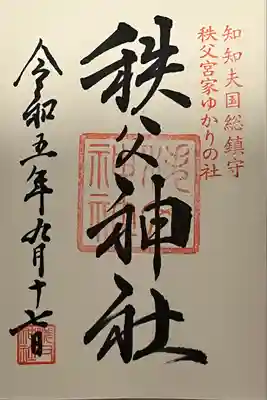 知知夫国総鎮守
秩父宮家ゆかりの社
秩父神社
令和五年九月十七日